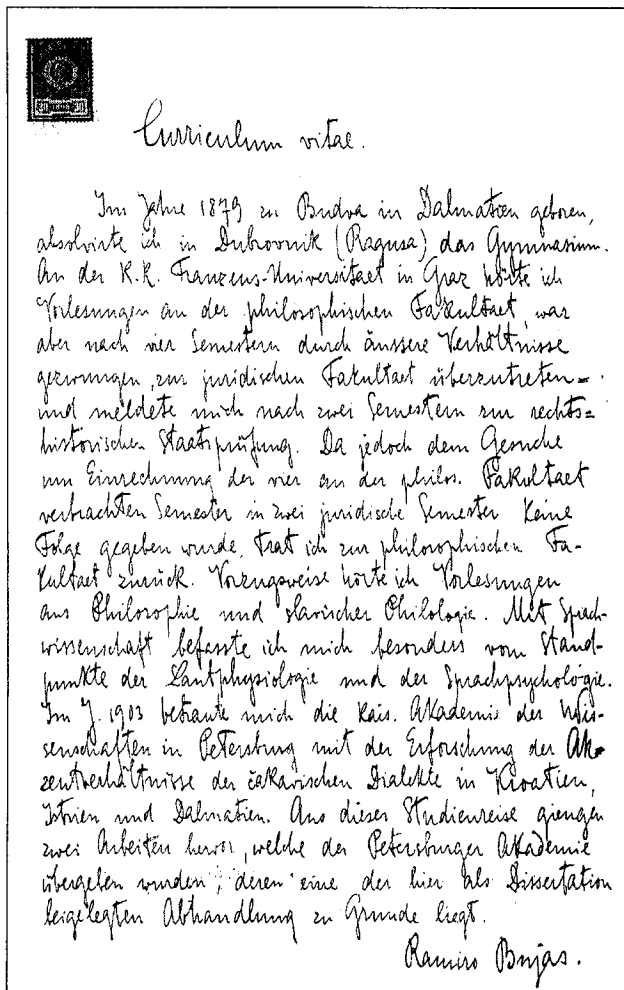 Curriculum vitae.
Im Jahre 1879 zu Budva in Dalmatien geboren,
absolvirte ich in Dubrovnik (Ragusa) das Gymnasium.
An der K.K. Franzens-Universitaet in Graz hörte ich
Vorlesungen an der philosophischen Fakultaet, war
aber nach vier Semestern durch äussere Verhältnisse
gezwungen, zur juridischen Fakultaet überzutreten
und meldete mich nach zwei Semestern zur rechts=
historischen Staatsprüfung. Da jedoch dem Gesuche
um Einrechnung der vier an der philos. Fakultaet
verbrachten Semester in zwei juridische Semester keine
Folge gegeben wurde, trat ich zur philosophischen Fa-
kultaet zurück. Vorzugsweise hörte ich Vorlesungen
aus Philosophie und slavischer Philologie. Mit Sprach-
wissenschaft befasste ich mich besonders vom Stand-
punkte der Lautphysiologie und der Sprachpsychologie.
Im J. 1903 betraute mich die Kais. Akademie der Wis-
senschaften in Petersburg mit der Erforschung der Ak-
zentverhältnisse der čakavischen Dialekte in Kroatien,
Istrien und Dalmatien. Aus dieser Studienreise giengen
zwei Arbeiten hervor, welche der Petersburger Akademie
übergeben wurden; deren eine der hier als Dissertation
beigelegten Abhandlung zu Grunde liegt.
Ramiro Bujas.